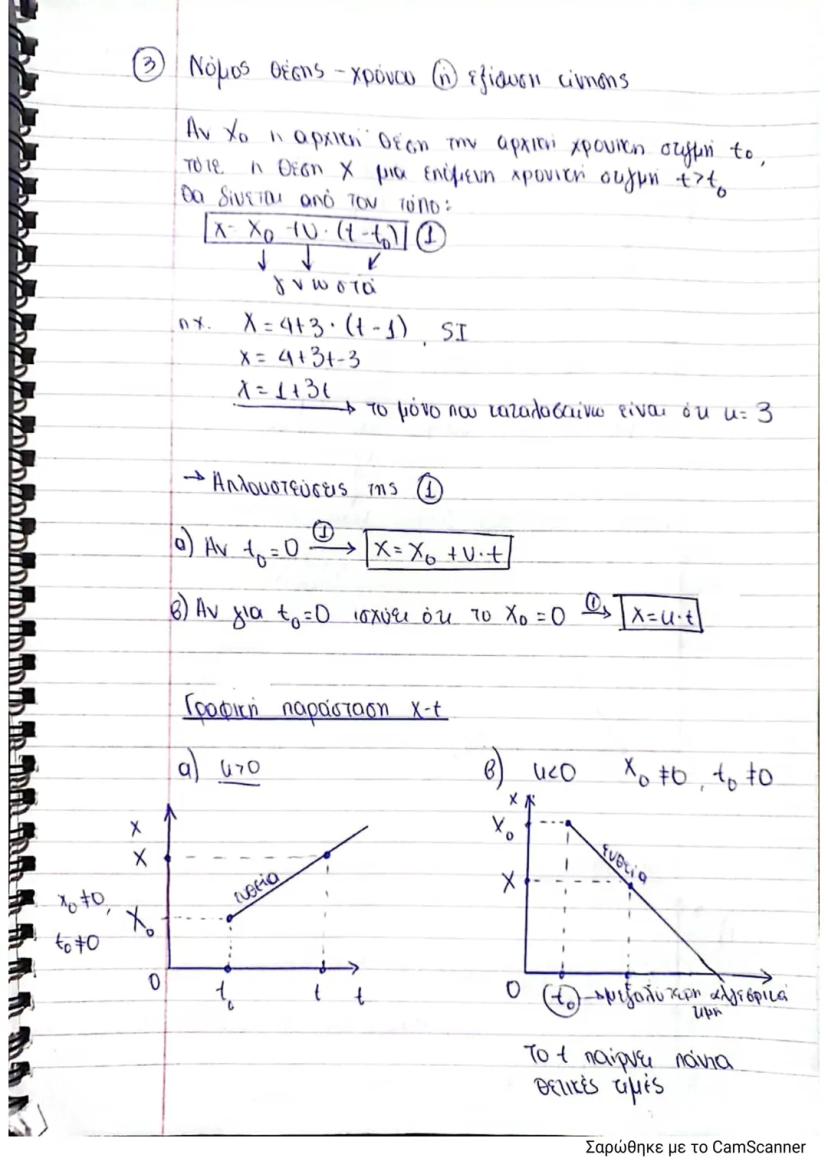 ③ Νόμος θέσης - χρόνου (ή) εξίσωση κίνησης
Αν χ₀ η αρχική θέση την αρχική χρονική στιγμή t₀,
τότε η θέση χ μια επόμενη χρονική στιγμή t>t₀
θα δίνεται από τον τύπο:
x = x₀ + υ · (t - t₀) ①
γνωστά
πχ. x = 4+3 · (t - 1), SI
x = 4+3t-3
x = 1+3t
→ το μόνο που καταλαβαίνω είναι ότι υ = 3
→ Απλουστεύσεις της ①
α) Αν t₀ = 0 ①→ x = x₀ + υ · t
β) Αν για t₀=0 ισχύει ότι το x₀ = 0 ①→ x = υ · t
Γραφική παράσταση x-t
α) υ>0
β) υ<0 x₀ ≠ 0, t₀ ≠ 0
x
x
x₀ ≠ 0,
t₀ ≠ 0
x₀
ευθεία
0 t₀ t t
x
x₀
x
ευθεία
0 t₀ → μεγαλύτερη αλγεβρικά
τιμή
Το t παίρνει πάντα
θετικές τιμές
Σαρώθηκε με το CamScanner